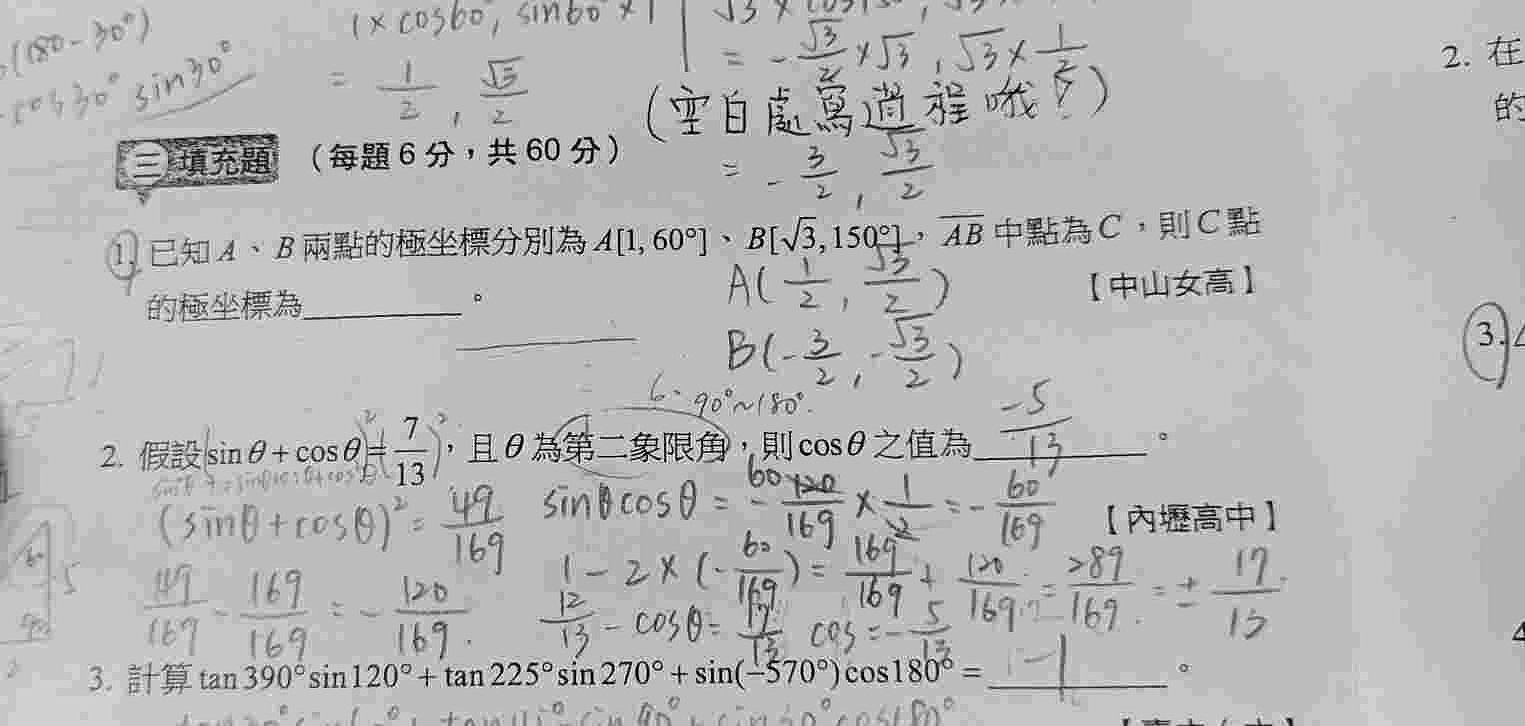 (180-30°)
cos30° sin30°
(1×cos60°, sin60°×1
= 1/2, √3/2
= -√3/2 ×√3, √3×1/2
(空白處寫過程哦!)
= -3/2, √3/2
三 填充題 (每題 6 分,共 60 分)
1. 已知 A、B 兩點的極坐標分別為 A[1, 60°]、B[√3, 150°],AB 中點為 C,則 C 點
的極坐標為________。
【中山女高】
A(1/2, √3/2)
B(-3/2, -√3/2)
90°~180°.
2. 假設 sinθ + cosθ = 7/13,且 θ 為第二象限角,則 cosθ 之值為 -5/13。
(sinθ+cosθ)² = 49/169
sinθcosθ = -120/169 × 1/2 = -60/169
【內壢高中】
49/169 - 169/169 = -120/169.
1-2×(-60/169) = 169/169 + 120/169 = 289/169 = ± 17/13
12/13 - cosθ = 17/13 cos = -5/13
3. 計算 tan 390° sin 120° + tan 225° sin 270° + sin(−570°) cos 180° = -1。
2. 在
的
3.